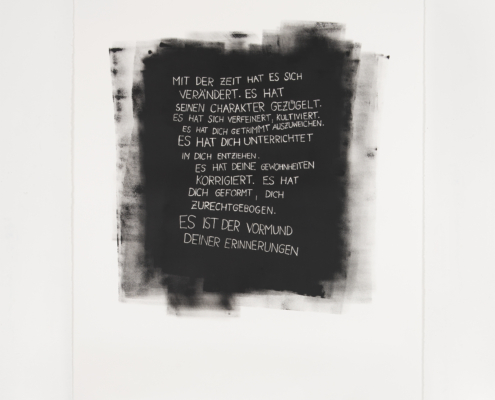 MIT DER ZEIT HAT ES SICH
VERÄNDERT. ES HAT
SEINEN CHARAKTER GEZÜGELT.
ES HAT SICH VERFEINERT, KULTIVIERT.
ES HAT DICH GETRIMMT AUSZUWEICHEN.
ES HAT DICH UNTERRICHTET
IM DICH ENTZIEHEN.
ES HAT DEINE GEWOHNHEITEN
KORRIGIERT. ES HAT
DICH GEFORMT, DICH
ZURECHTGEBOGEN.
ES IST DER VORMUND
DEINER ERINNERUNGEN